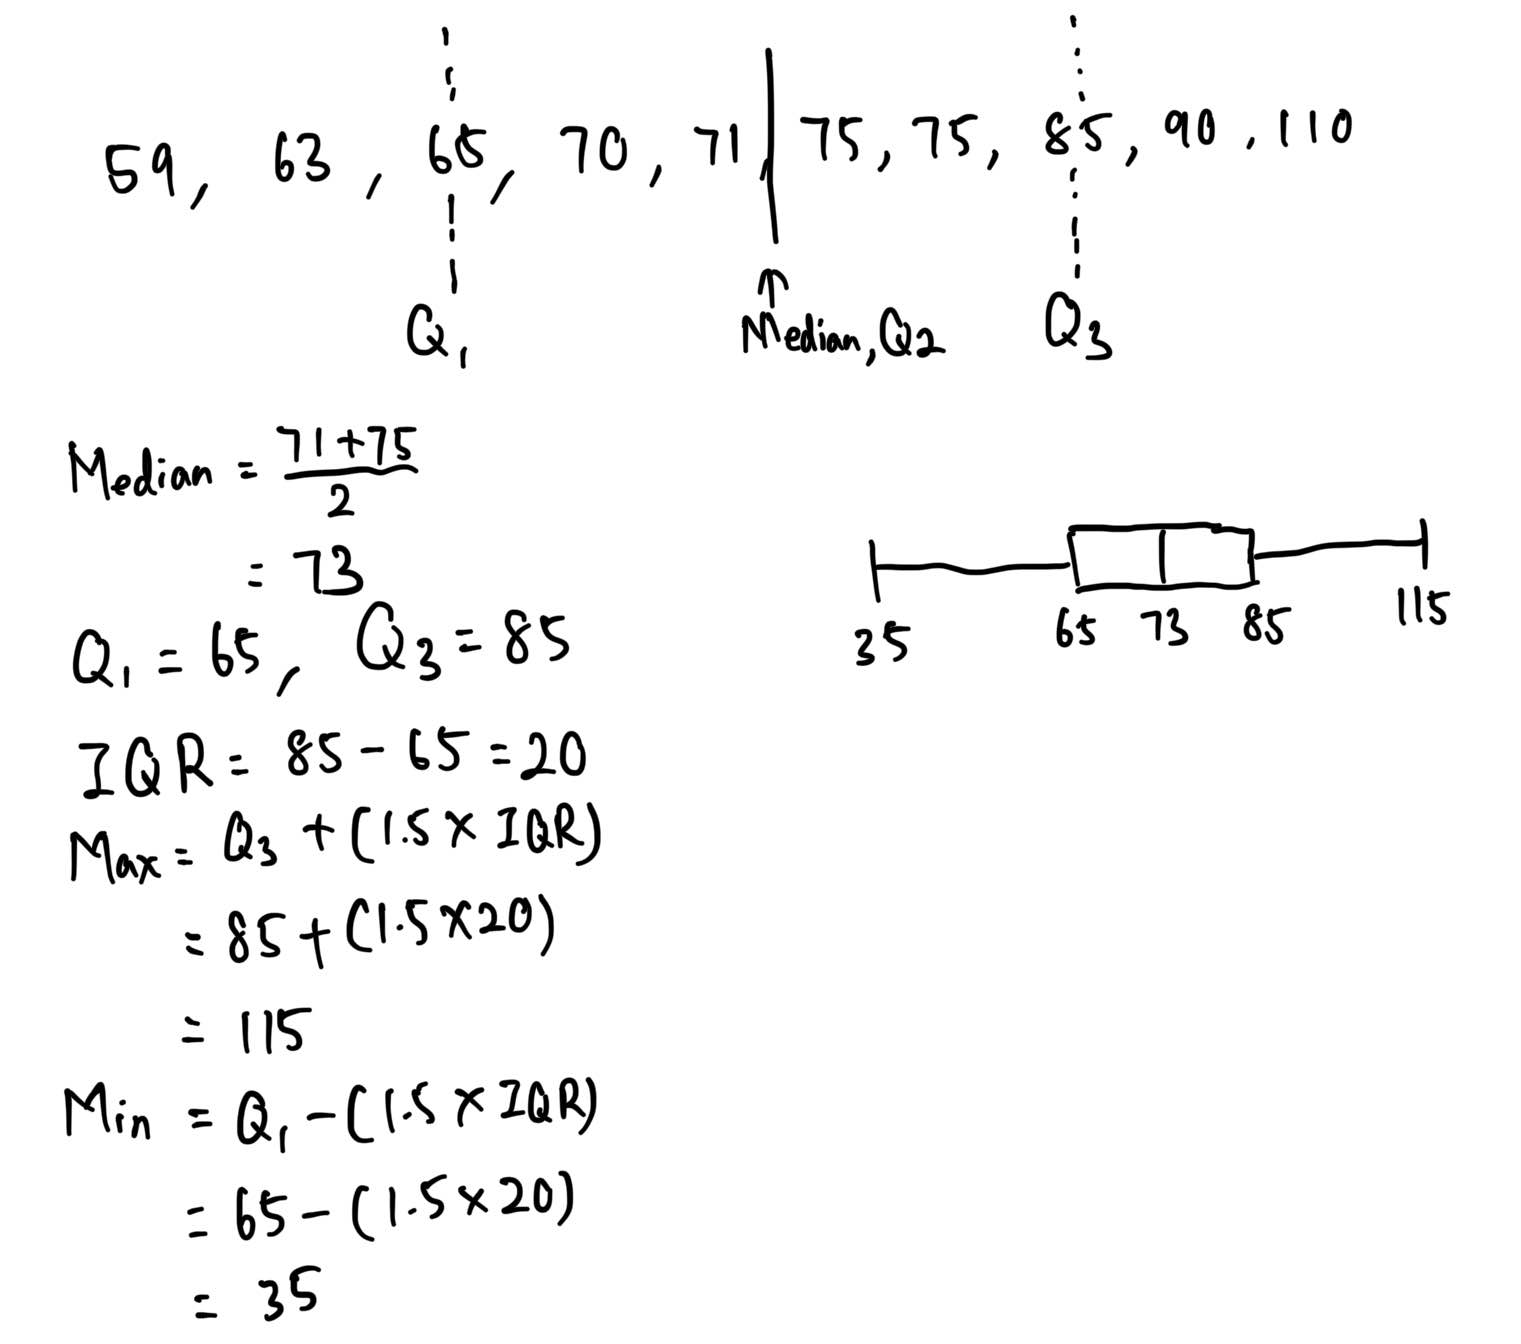 59, 63, 65, 70, 71, 75, 75, 85, 90, 110
Q₁ Median, Q2 Q3
Median = (71+75)/2
= 73
Q₁ = 65, Q3 = 85
IQR = 85 - 65 = 20
Max = Q3 + (1.5 × IQR)
= 85 + (1.5 × 20)
= 115
Min = Q₁ - (1.5 × IQR)
= 65 - (1.5 × 20)
= 35
35 65 73 85 115